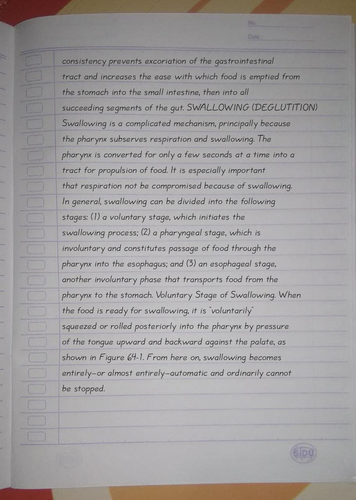 No.
Date:
consistency prevents excoriation of the gastrointestinal
tract and increases the ease with which food is emptied from
the stomach into the small intestine, then into all
succeeding segments of the gut. SWALLOWING (DEGLUTITION)
Swallowing is a complicated mechanism, principally because
the pharynx subserves respiration and swallowing. The
pharynx is converted for only a few seconds at a time into a
tract for propulsion of food. It is especially important
that respiration not be compromised because of swallowing.
In general, swallowing can be divided into the following
stages: (1) a voluntary stage, which initiates the
swallowing process; (2) a pharyngeal stage, which is
involuntary and constitutes passage of food through the
pharynx into the esophagus; and (3) an esophageal stage,
another involuntary phase that transports food from the
pharynx to the stomach. Voluntary Stage of Swallowing. When
the food is ready for swallowing, it is "voluntarily"
squeezed or rolled posteriorly into the pharynx by pressure
of the tongue upward and backward against the palate, as
shown in Figure 64-1. From here on, swallowing becomes
entirely—or almost entirely—automatic and ordinarily cannot
be stopped.
SiDU